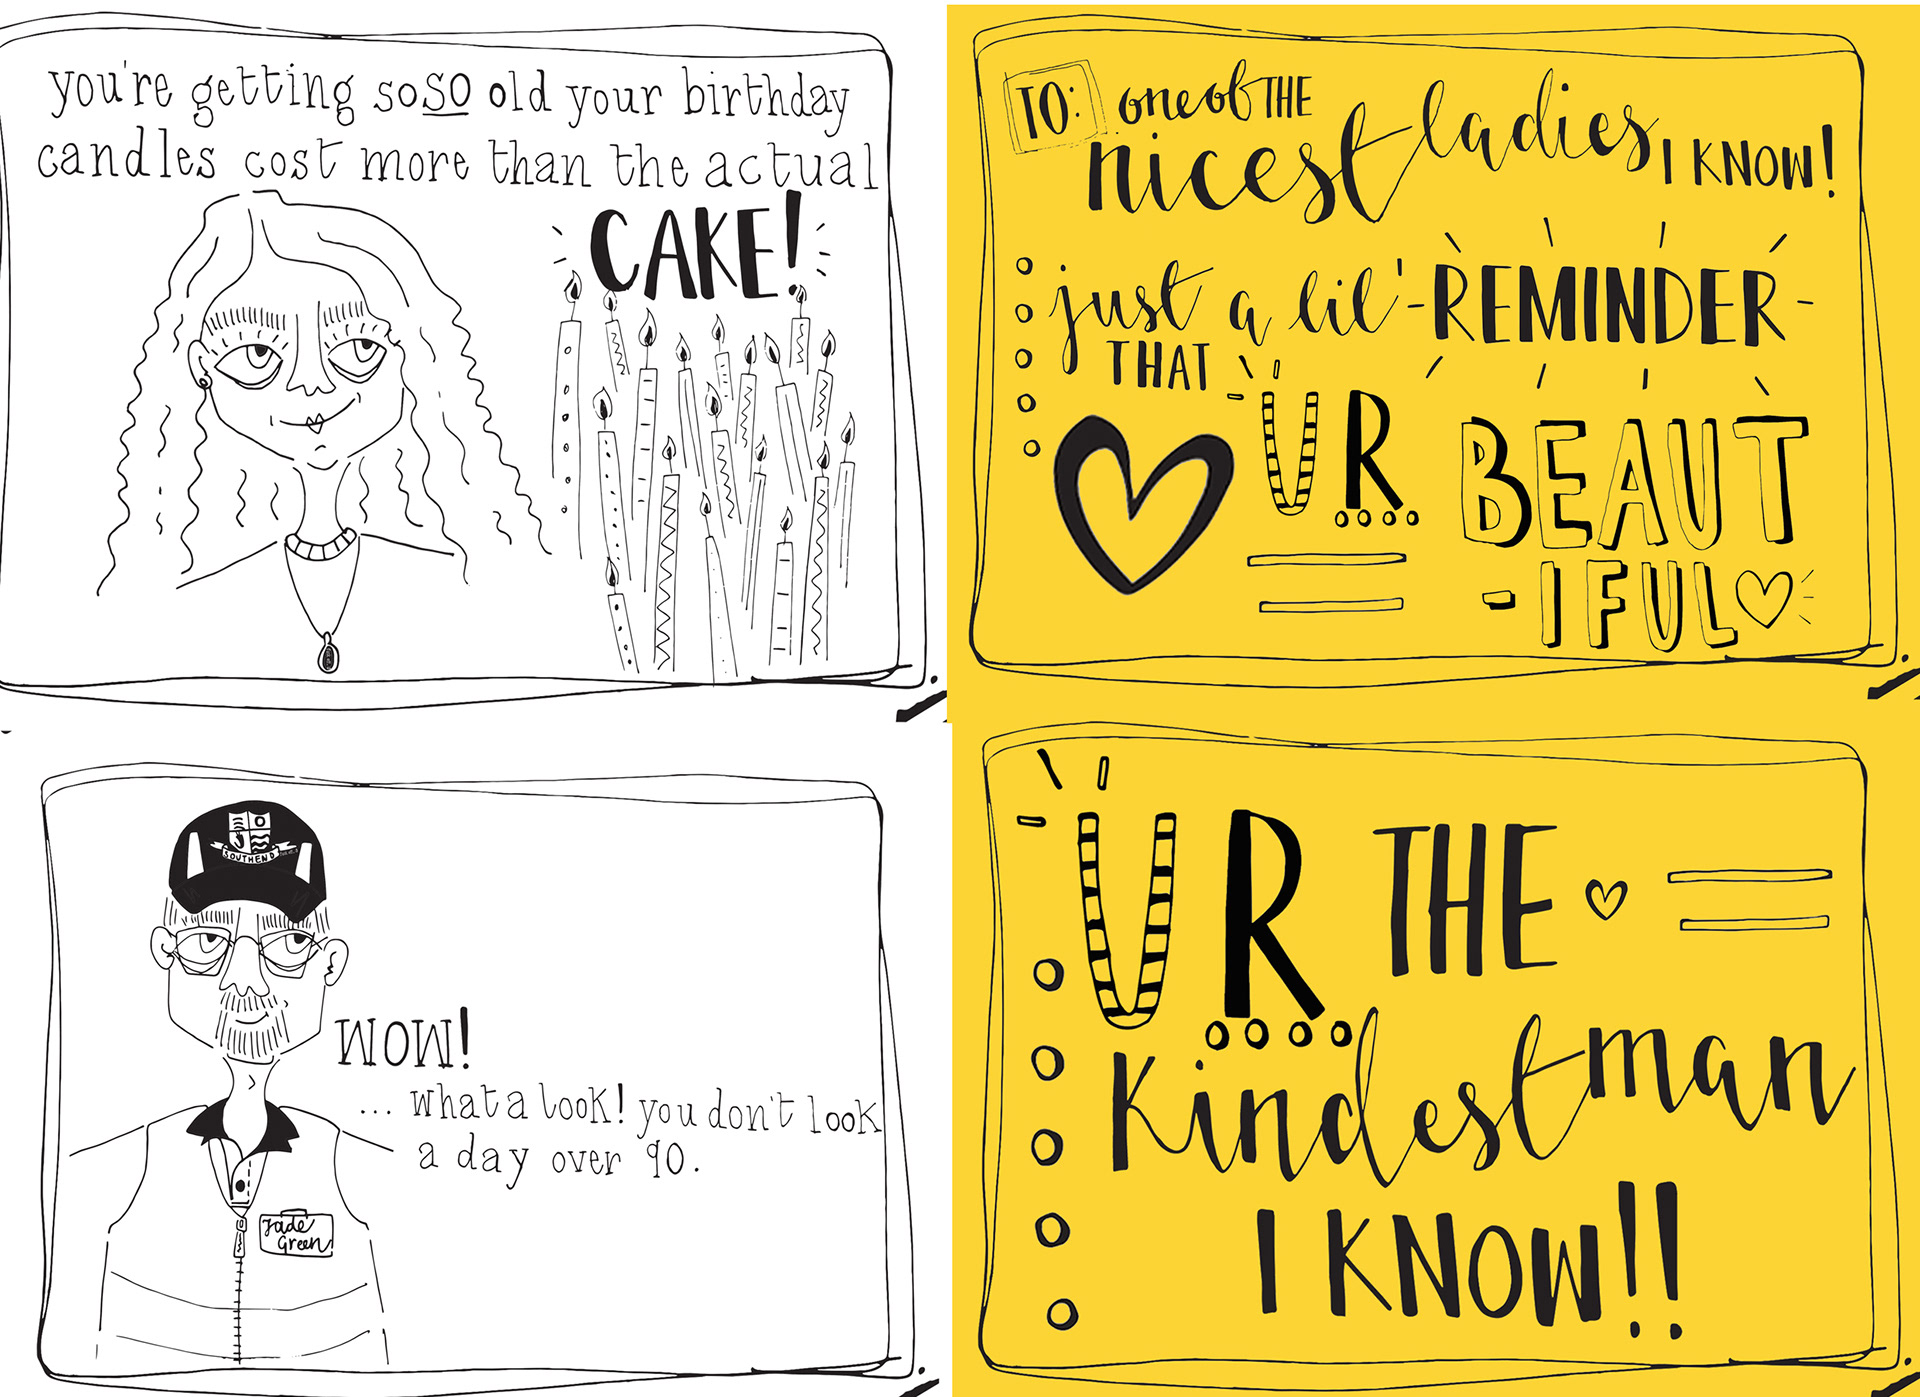 you're getting soSO old your birthday
candles cost more than the actual
CAKE!
TO: one of THE
nicest ladies I KNOW!
just a lil' -REMINDER-
THAT UR....
BEAUT
-IFUL
SOUTHEND
WOW!
... what a look! you don't look
a day over 90.
Jade
Green
UR.... THE
Kindest man
I KNOW!!